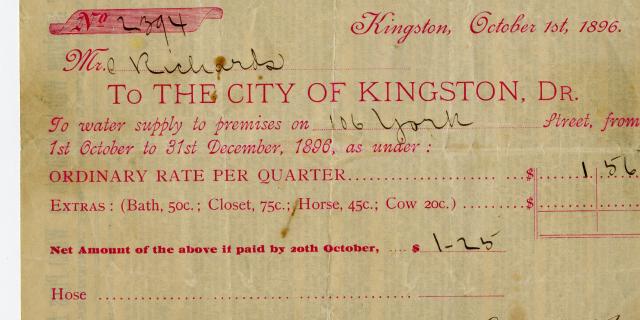 No 2394 Kingston, October 1st, 1896.
Mr. C Richards
To THE CITY OF KINGSTON, Dr.
To water supply to premises on 106 York Street, from
1st October to 31st December, 1896, as under:
ORDINARY RATE PER QUARTER.................... ...$ 1.56
EXTRAS: (Bath, 50c.; Closet, 75c.; Horse, 45c.; Cow 20c.) .........$
Net Amount of the above if paid by 20th October, .... $ 1-25
Hose ....................